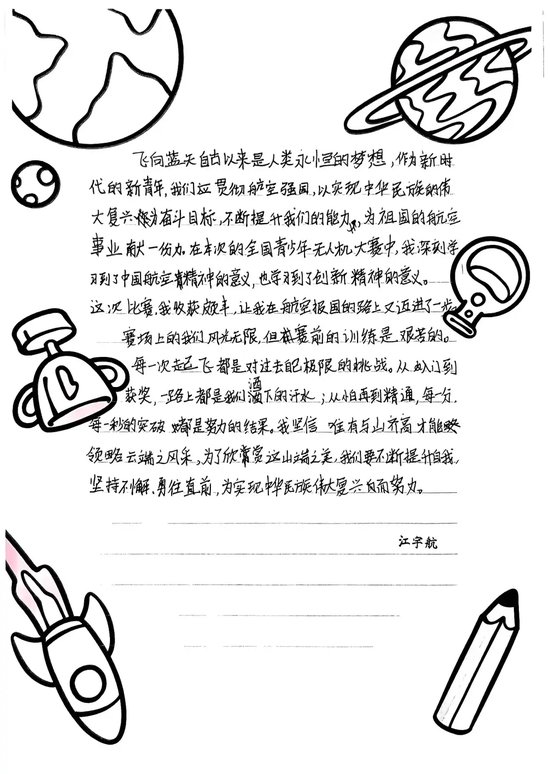 飞向蓝天自古以来是人类永恒的梦想，作为新时
代的新青年，我们应贯彻航空强国，以实现中华民族的伟
大复兴为奋斗目标，不断提升我们的能力，为祖国的航空
事业献一份力。在本次的全国青少年无人机大赛中，我深刻学
习到了中国航空精神的意义，也学习到了创新精神的意义。
这次比赛，我收获颇丰，让我在航空报国的路上又迈进了一步。
赛场上的我们风光无限，但赛前的训练是艰苦的。
每一次起飞都是对过去自己极限的挑战。从入门到
获奖，一路上都是我们洒下的汗水；从怕再到精通，每一分
每一秒的突破都是努力的结果。我坚信 唯有与山齐高才能
领略云端之风采，为了欣赏这山端之美，我们要不断提升自我，
坚持不懈，勇往直前，为实现中华民族伟大复兴而努力。
江宇航